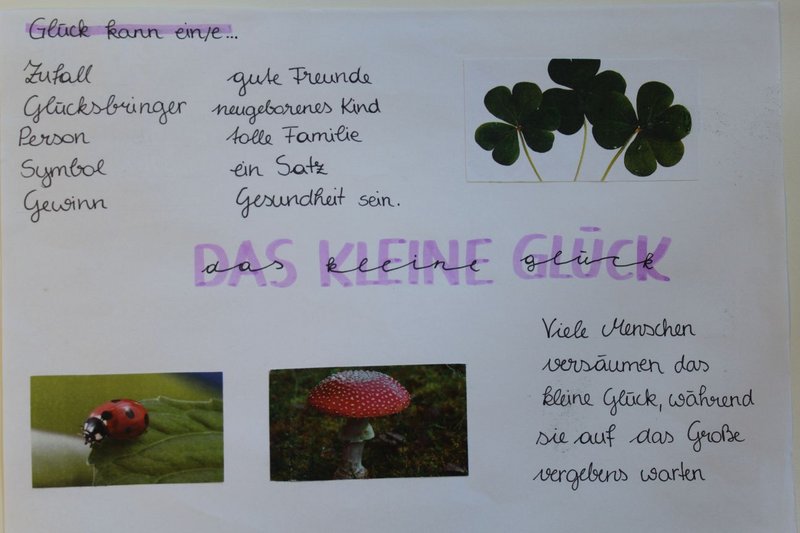 Glück kann ein/e...
Zufall
Glücksbringer
Person
Symbol
Gewinn
gute Freunde
neugeborenes Kind
tolle Familie
ein Satz
Gesundheit sein.
DAS KLEINE GLÜCK
das kleine glück
Viele Menschen
versäumen das
kleine Glück, während
sie auf das Große
vergebens warten